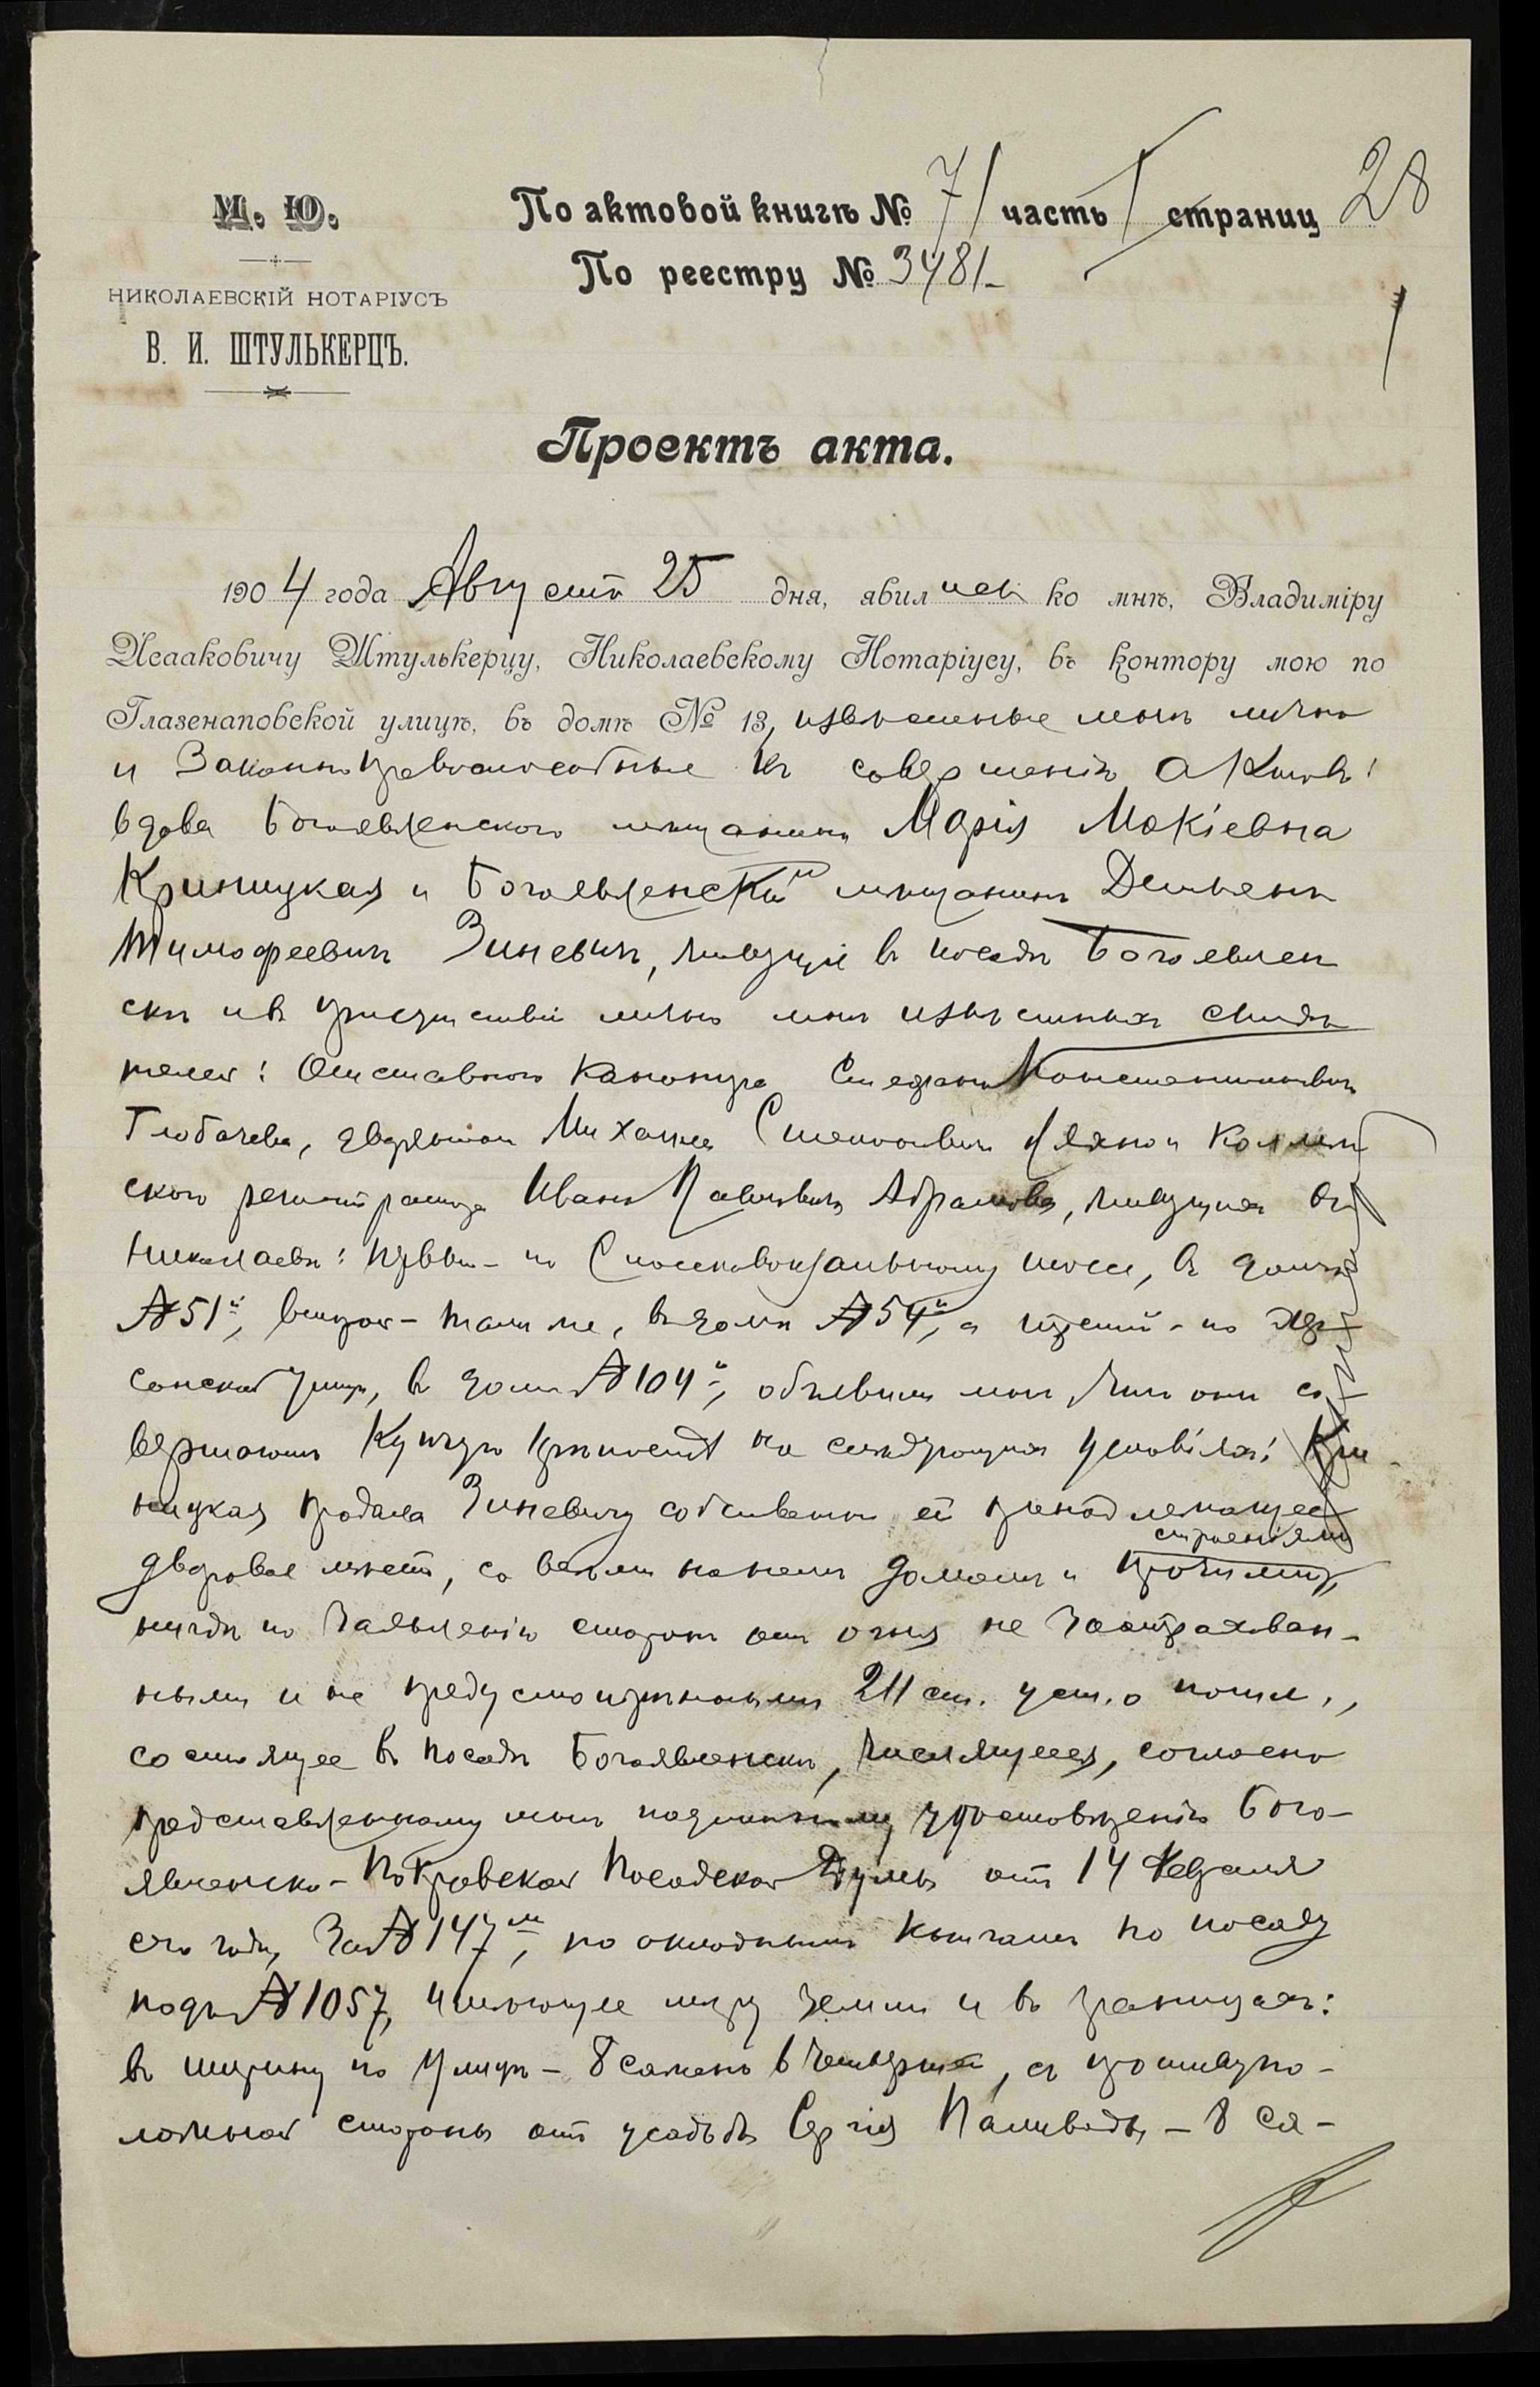 М. Ю.
НИКОЛАЕВСКІЙ НОТАРІУСЪ
В. И. ШТУЛЬКЕРЦЪ.
По актовой книгѣ № 71 часть страниц 28
По реестру № 3481
1
Проектъ акта.
1904 года Августа 25 дня, явились ко мнѣ, Владиміру
Исааковичу Штулькерцу, Николаевскому Нотаріусу, въ контору мою по
Глазенаповской улицѣ, въ домѣ № 13, извѣстные мнѣ лично
и законно правоспособные къ совершенію актовъ:
вдова Богоявленского мѣщанина Марія Мокіевна
Криницкая и Богоявленскій мѣщанинъ Демьянъ
Тимофеевичъ Зиневичъ, живущіе въ посадѣ Богоявлен
скѣ и въ присутствіи лично мнѣ извѣстныхъ свидѣ
телей: Отставного канонира Стефана Константиновича
Глобачева, дворянина Михаила и Коллеж
ского регистратора Ивана Павловича Абрамова, живущихъ въ
Николаевѣ: первый - по Спасскому шоссе, въ домѣ
№ 51й, второй - тамъ же, въ домѣ № 54й, а третій - по Хер
сонской улицѣ, въ домѣ № 104й, объявили мнѣ, что они со
вершаютъ купчую крѣпость на слѣдующихъ условіяхъ: Кри
ницкая продала Зиневичу собственно ей принадлежащее
дворовое мѣсто, со всѣми на немъ домомъ и прочими строеніями,
нигдѣ по заявленію сторонъ отъ огня не застрахован-
ными и не предусмотрѣнными 211 ст. уст. о пошл.,
состоящее въ посадѣ Богоявленскѣ, числящееся, согласно
представленному мнѣ подлинному удостовѣренію Бого-
явленско-Покровской Посадской Думы отъ 14 Февраля
сего года, за № 147м, по окладнымъ книгамъ по посаду
подъ № 1057, имѣющее мѣру земли и въ границахъ:
въ ширину по улицѣ - 8 саженъ въ четверти, съ противупо-
ложной стороны отъ усадьбы Сергія Паливоды, - 8 са-